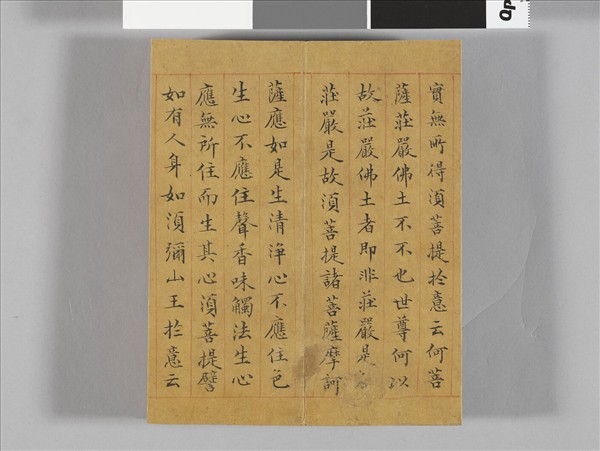 實無所得須菩提於意云何菩
薩莊嚴佛土不不也世尊何以
故莊嚴佛土者即非莊嚴是
莊嚴是故須菩提諸菩薩摩訶
薩應如是生清淨心不應住色
生心不應住聲香味觸法生心
應無所住而生其心須菩提譬
如有人身如須彌山王於意云
Qp